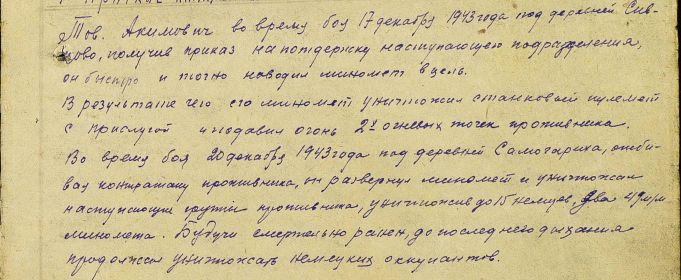 Тов. Акимович во время боя 17 декабря 1943 года под деревней Сив-
цово, получив приказ на потдержку наступающего подразделения,
он быстро и точно наводил миномет в цель.
В результате чего его миномет уничтожил станковый пулемет
с прислугой и подавил огонь 2х огневых точек противника.
Во время боя 20 декабря 1943 года под деревней Самохариха, отби-
вая контратаку противника, он развернул миномет и уничтожал
наступающие группы противника, уничтожив до 15 немцев, два м/м
миномета. Будучи смертельно ранен, до последнего дыхания
продолжал уничтожать немецких оккупантов.